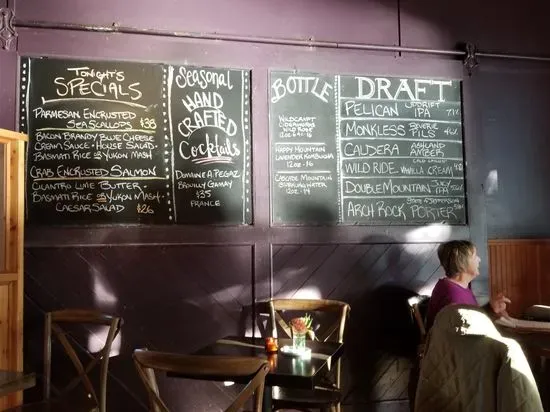 TONIGHT'S
SPECIALS
PARMESAN ENCRUSTED
SEA SCALLOPS $38
BACON BRANDY BLUE CHEESE
CREAM SAUCE · HOUSE SALAD ·
BASMATI RICE OR YUKON MASH
CRAB ENCRUSTED SALMON
CILANTRO LIME BUTTER ·
BASMATI RICE OR YUKON MASH ·
CAESAR SALAD $26
Seasonal
HAND
CRAFTED
Cocktails
DOMAINE A. PEGAZ
BROUILLY GAMAY
$35
FRANCE
BOTTLE
WILDCRAFT
CIDERWORKS
WILD ROSE
HAPPY MOUNTAIN
LAVENDER KOMBUCHA
12oz
CASCADE MOUNTAIN
SPARKLING WATER
12oz
DRAFT
PELICAN UPDRIFT
IPA
MONKLESS
PILS
CALDERA ASHLAND
AMBER
WILD RIDE VANILLA CREAM
DOUBLE MOUNTAIN
IPA
ARCH ROCK PORTER